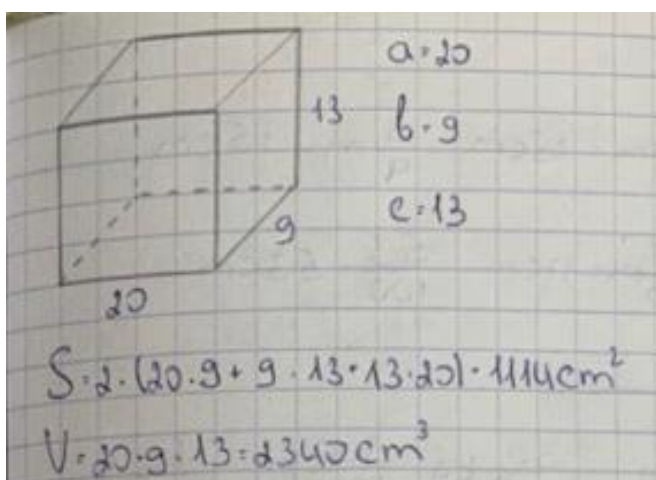 a=20
13
b=9
c=13
9
20
S=2·(20·9+9·13+13·20)=1114cm²
V=20·9·13=2340cm³